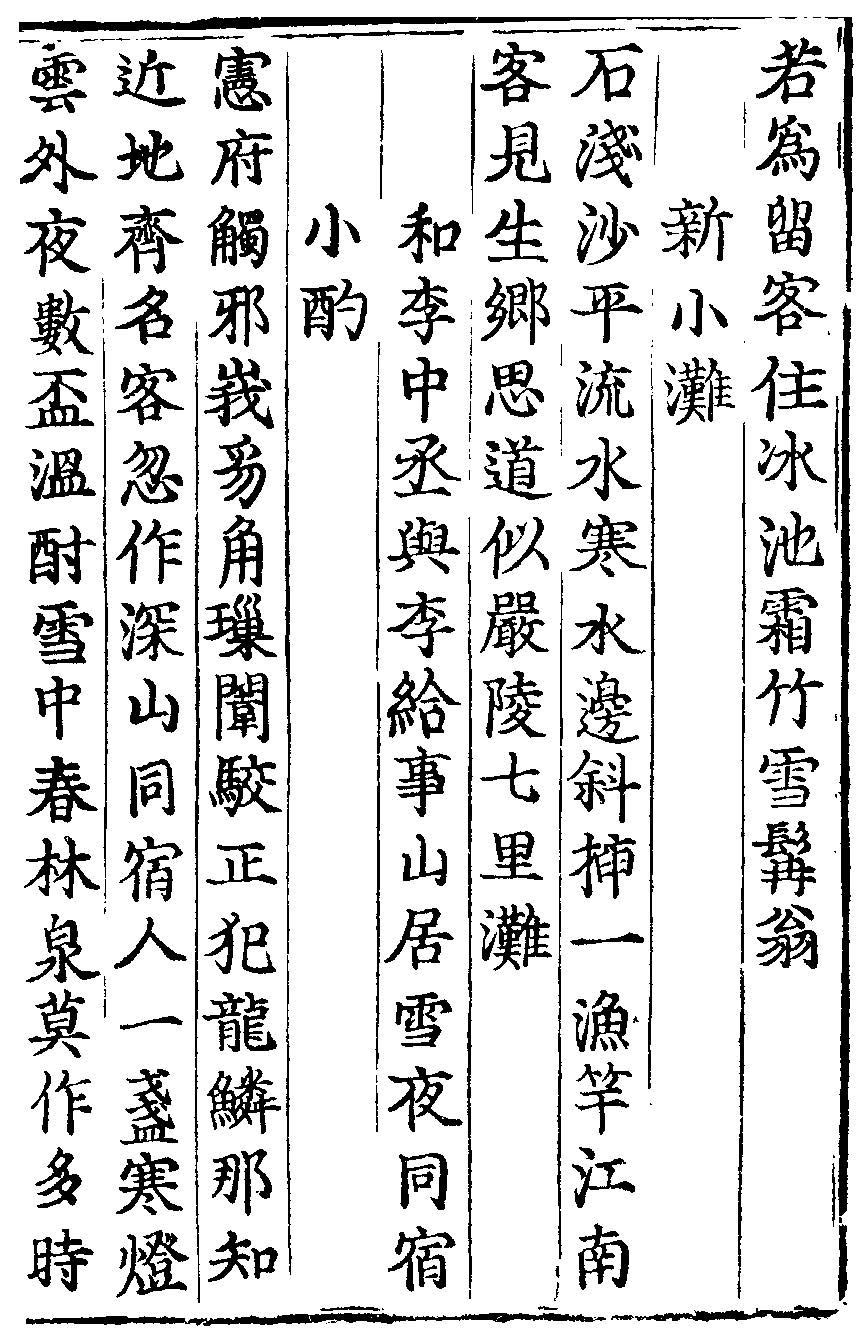 若爲留客住冰池霜竹雪髯翁
新小灘
石淺沙平流水寒水邊斜揷一漁竿江南
客見生鄉思道似嚴陵七里灘
和李中丞與李給事山居雪夜同宿
小酌
憲府觸邪峩豸角瑣闈駮正犯龍鱗那知
近地齊名客忽作深山同宿人一盞寒燈
雲外夜數盃溫酎雪中春林泉莫作多時